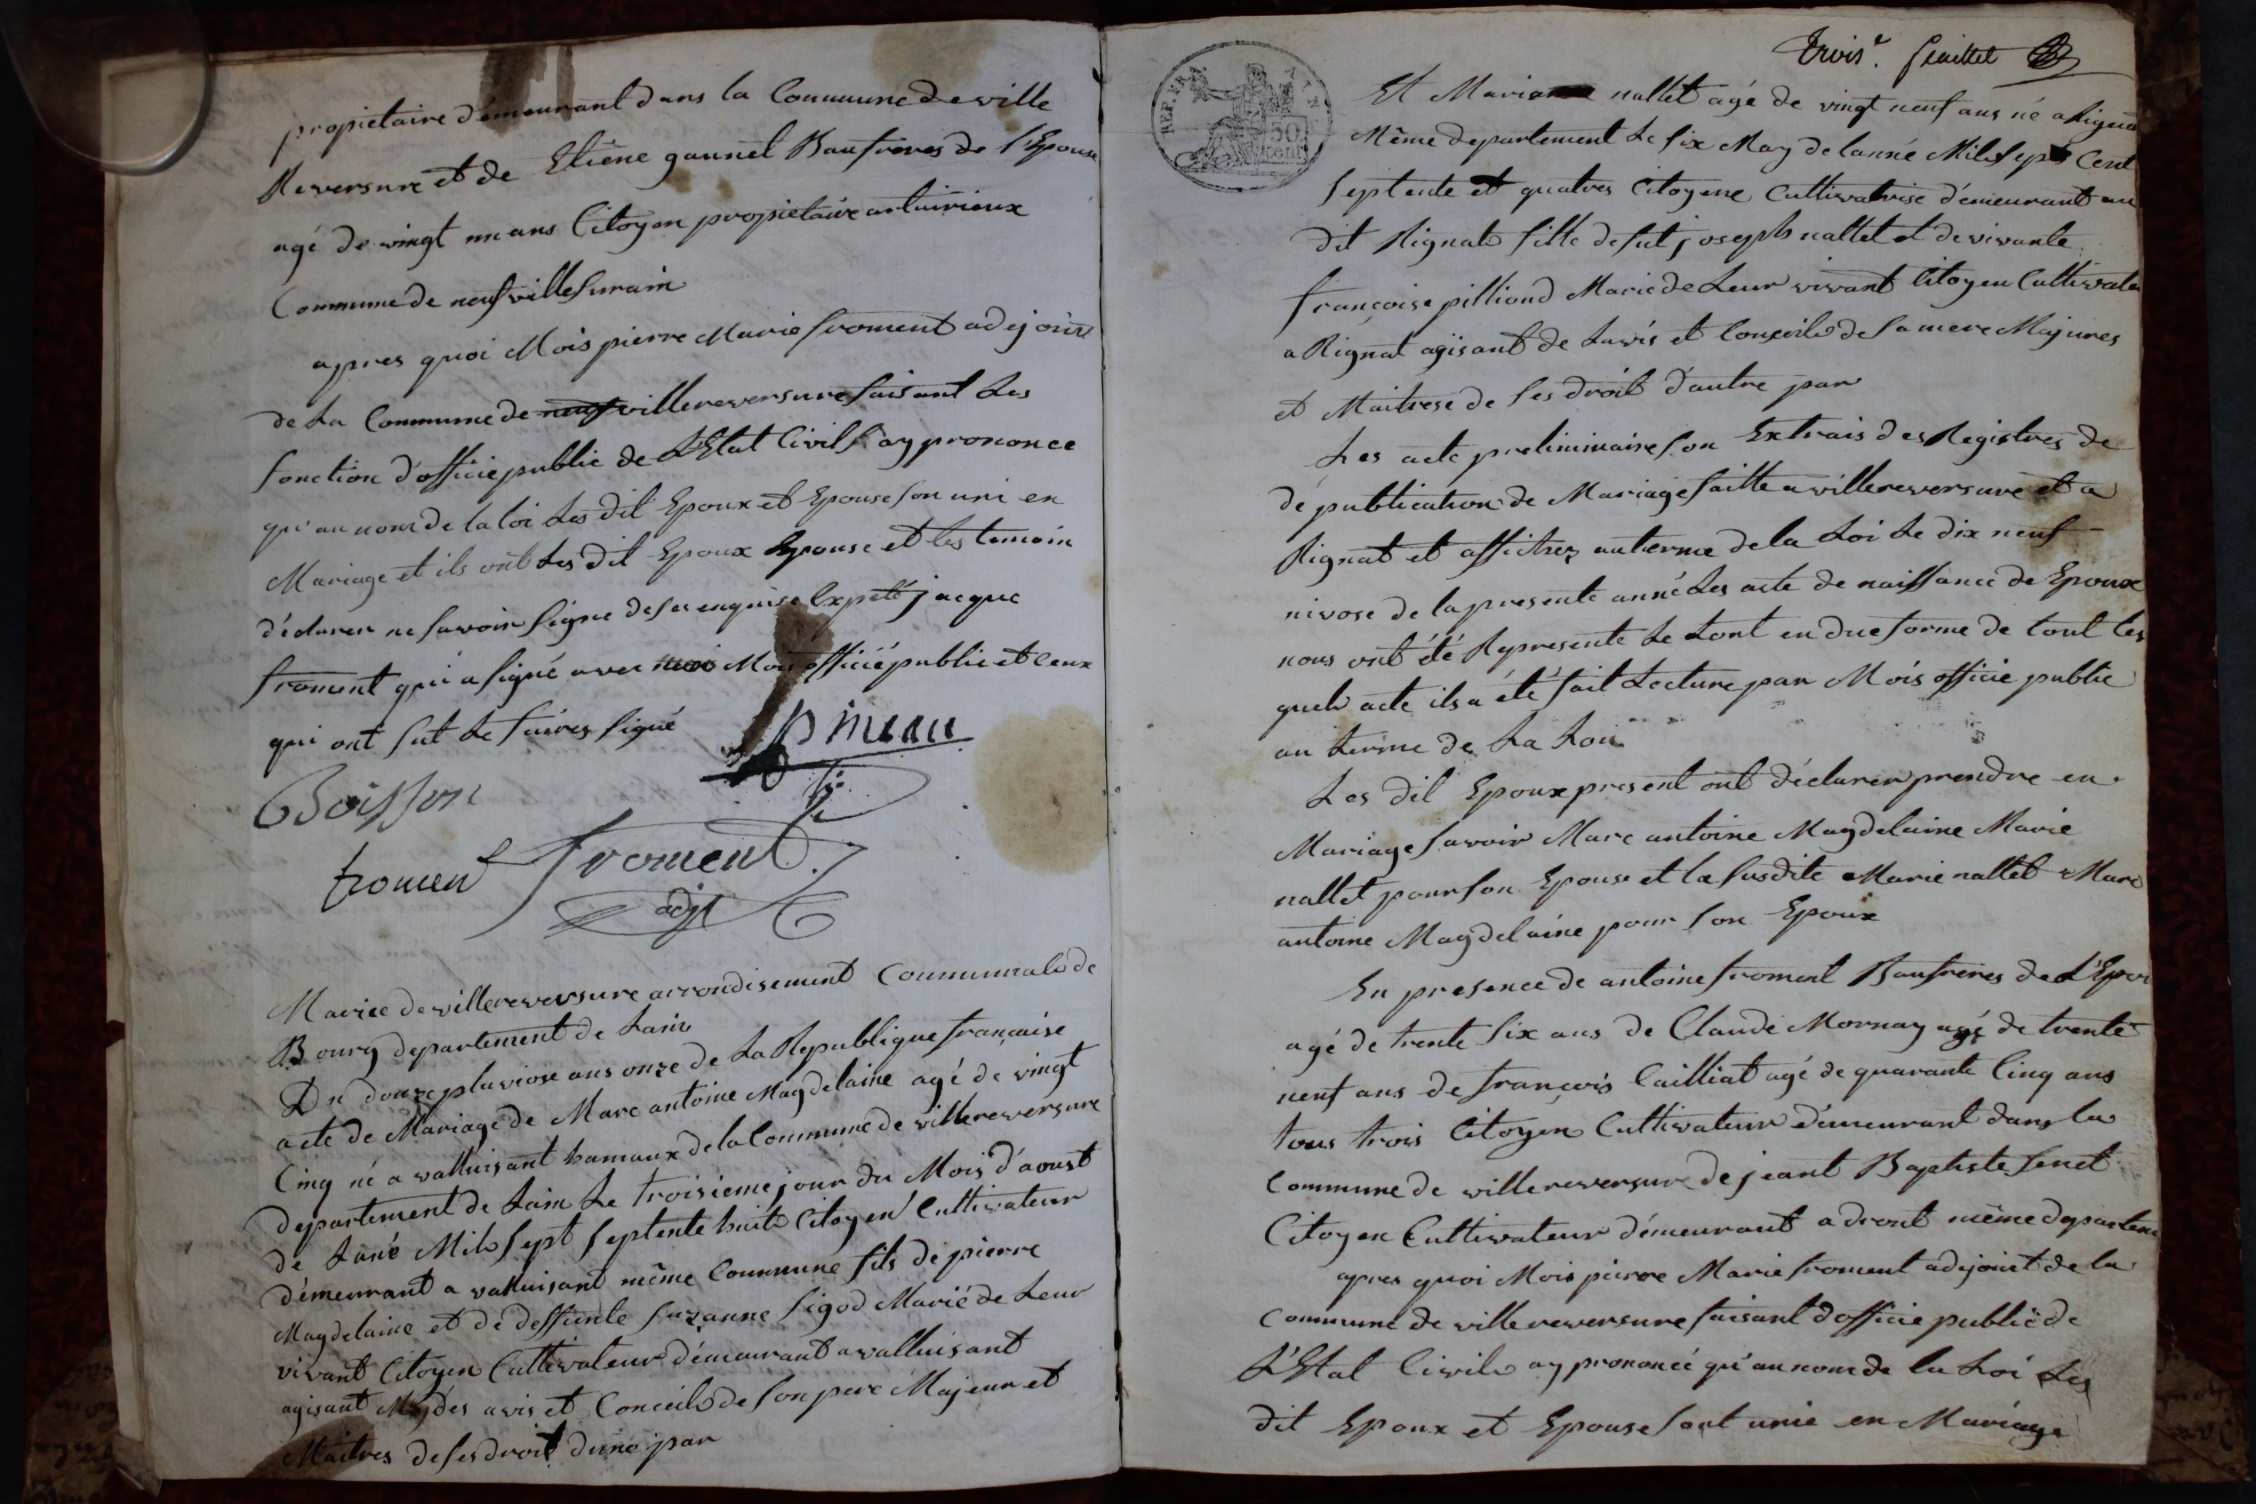 propietaire démeurant dans la Commune de ville
Reversure et de Etiéne gaunet Baufréres de l'Epouse
agé de vingt un ans Citoyen propietaire
Commune de neufville Surain
apres quoi Mois pierre Marie froment adejoint
de La Commune de neuf villereversure faisant Les
fonction d'officie public de L'Etat Civils ay prononce
qu'au nom de la loi Les dit Epoux et Epouse son uni en
Mariage et ils ont Les dit Epoux Epouse et les temoin
déclarer ne savoir signe de se enquise Expeté jacque
froment qui a signé avec moi Mois officié public et Ceux
qui ont sut Le faires signé
pineau
Boisson
fromen froment
adjt
Mairie de villereversure arrondisement Communals de
Bourg departement de Lain
Du douze pluviose ans onze de La Republique française
acte de Mariage de Marc antoine Magdelaine agé de vingt
Cinq né a valluisant hamaux de la Commune de villereversure
departement de Lain Le troisieme jour du Mois d'aoust
de Lané Mils Sept Septente huit Citoyen Cultivateur
démeurant a valluisant même Commune fils de pierre
Magdelaine et de deffunte Suzanne Sigod Marié de Leur
vivant Citoyen Cultivateur démeurant a valluisant
agisant des avis et Conceils de son pere Majeur et
Maitres de ses droit dune par
Trois.e feuillet
REP. FRA. 50 cent AIN
Et Maria nallet agé de vingt neuf ans né a Rignat
Même departement Le six May de lanné Mils Sept Cent
Septente et quatres Citoyene Cultivatrise démeurant au
dit Rignat fille de fut joseph nallet et de vivante
françoise pilliond Marie de Leur vivant Citoyen Cultivateur
a Rignat agisant de Lavis et Conceils de sa mere Majures
et Maitrese de Ses droit d'autre par
Les acte preliminaire son Extrais des Registres de
dé publication de Mariage faitte a villereversure et a
Rignat et affichez au terme de la Loi Le dix neuf
nivose de la presente anné Les acte de naissance de Epoux
nous ont été Represente Le tout en due forme de tout les
quels acte ils a été fait Lecture par Mois officie public
au terme de La Loi
Les dit Epoux present ont déclarer prendre en
Mariage savoir Marc antoine Magdelaine Marie
nallet pour son Epouse et la susdite Marie nallet Marc
antoine Magdelaine pour son Epoux
En presence de antoine froment Baufreres de L'Epou
agé de trente six ans de Claude Mornay agé de trente
neuf ans de françois Cailliat agé de quarante Cinq ans
tous trois Citoyen Cultivateur démeurant dans la
Commune de villereversure de jeant Baptiste Senet
Citoyen Cultivateur démeurant a dront même departeme
apres quoi Mois pierre Marie froment adejoint de la
Commune de villereversure faisant d'officie public de
L'Etat Civils ay prononcé qu'au nom de la Loi Les
dit Epoux et Epouse sont unie en Mariage